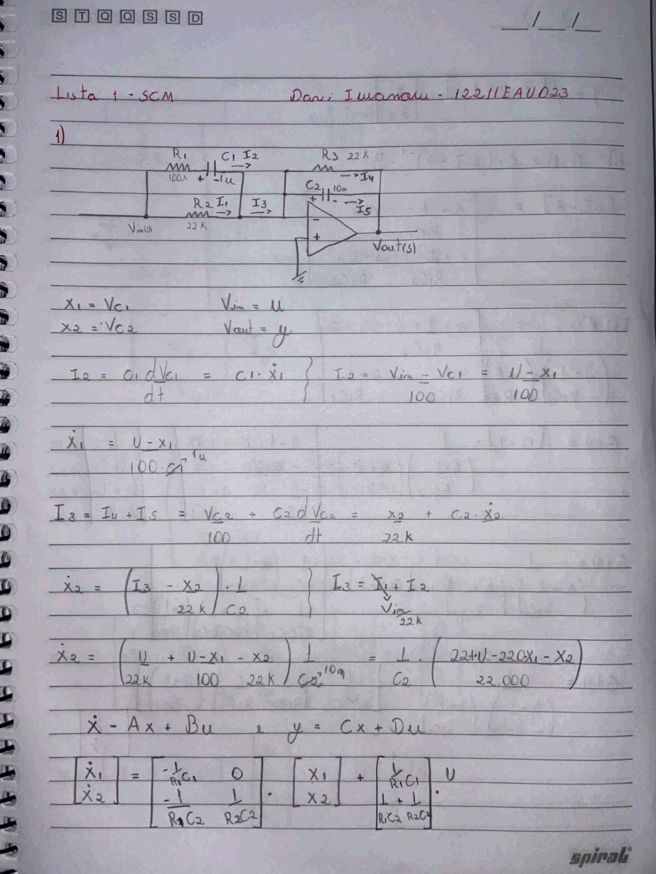 S T Q Q S S D
__/__/__
Lista 1 - SCM
1)
R1 C1 I2 R3 22K
+ -1u I4
C2 10n
+ -
R2 I1 I3 I5
22K
Vin(s) - + Vout(s)
X1 = VC1 Vin = u
X2 = VC2 Vout = y
I2 = C1 dVC1/dt = C1·ẋ1 } I2 = Vin - VC1/100 = U - X1/100
ẋ1 = U - X1/100·C1 → 1u
I3 = I4 + I5 = VC2/100 + C2 dVC2/dt = X2/22K + C2·ẋ2
ẋ2 = (I3 - X2/22K)·1/C2 } I3 = I1 + I2
Vin/22K
ẋ2 = (U/22K + U-X1/100 - X2/22K) 1/C2 → 10n = 1/C2 · (221·U - 220X1 - X2/22.000)
ẋ - Ax + Bu e y = Cx + Du
[ẋ1 ẋ2] = [-1/R1C1 0; -1/R1C2 1/R2C2] · [X1 X2] + [1/R1C1; 1/R1C2 + 1/R2C2] · U
spiral